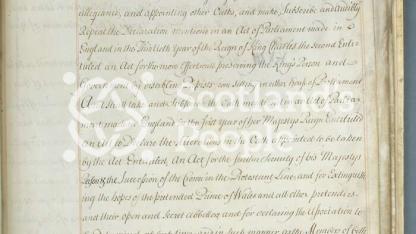 allegiance, and appointing other Oaths, and make, Subscribe and audibly
Repeat the Declaration mentioned in an Act of Parliament made in
England in the Thirtieth Year of the Reign of King Charles the Second Enti-
tuled an Act for the more Effectual preserving the Kings Person and
Government by Papists from sitting in either House of Parliament
And shall take and Subscribe the Oath mentioned in an Act of Parlia-
ment made in England in the first year of her Majestys Reign Entituled
an Act to Declare the in the Oath appointed to be taken
by the Act Entituled, An Act for the further Security of his Majestys
Person & the Succession of the Crown in the Protestant Line, and for Extinguish
ing the hopes of the pretended Prince of Wales and all other pretenders
and their open and Secret and for declaring the Association to
and in such manner as the Members of both
Scotland's
People